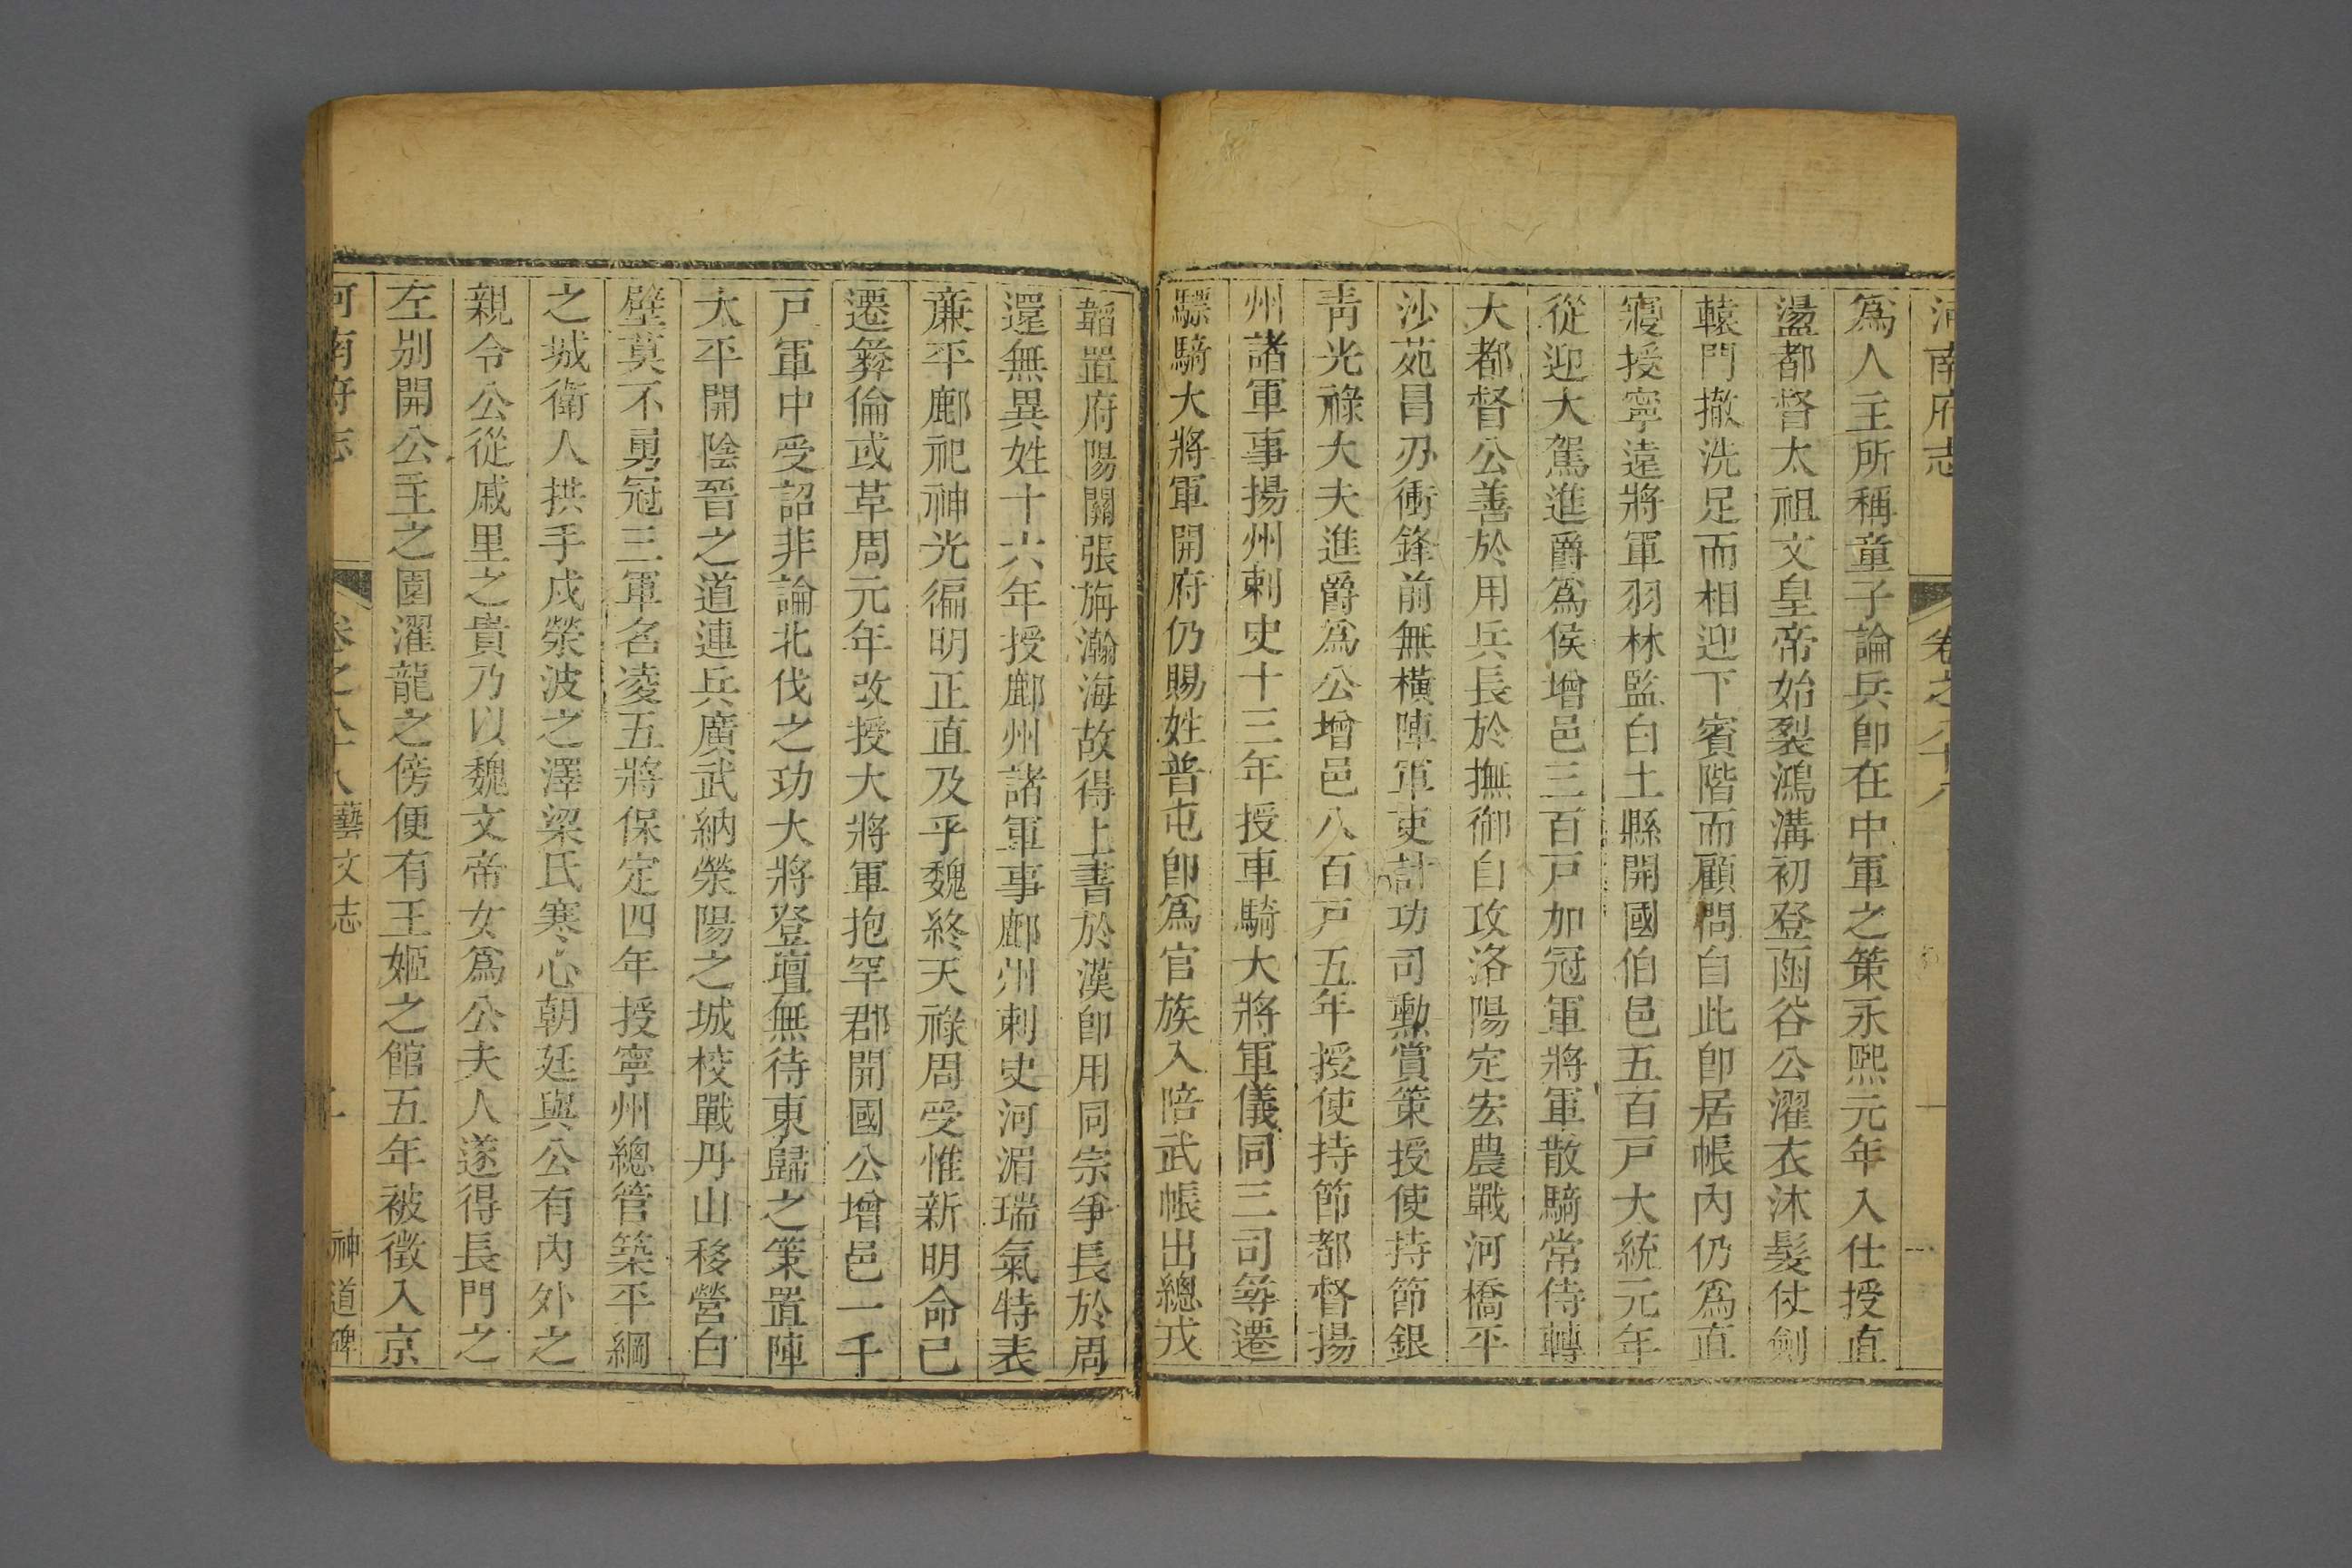 河南府志 卷之八十八
爲人主所稱童子論兵卽在中軍之策永熙元年入仕授直
盪都督太祖文皇帝始裂鴻溝初登函谷公濯衣沐髮仗劍
轅門撤洗足而相迎下賓階而顧問自此卽居帳內仍爲直
寢授寧遠將軍羽林監白土縣開國伯邑五百戸大統元年
從迎大駕進爵爲侯增邑三百戸加冠軍將軍散騎常侍轉
大都督公善於用兵長於撫御自攻洛陽定宏農戰河橋平
沙苑昌刃衝鋒前無橫陣軍吏計功司勳賞策授使持節銀
靑光祿大夫進爵爲公增邑八百戸五年授使持節都督揚
州諸軍事揚州刺史十三年授車騎大將軍儀同三司尋遷
驃騎大將軍開府仍賜姓普屯卽爲官族入陪武帳出總戎
韜置府陽關張旃瀚海故得上書於漢卽用同宗爭長於周
還無異姓十六年授鄜州諸軍事鄜州刺史河湄瑞氣特表
亷平鄜祀神光徧明正直及乎魏終天祿周受惟新明命已
遷彜倫或草周元年改授大將軍抱罕郡開國公增邑一千
戸軍中受詔非論北伐之功大將登壇無待東歸之策置陣
太平開陰晉之道連兵廣武納滎陽之城校戰丹山移營白
壁莫不勇冠三軍名凌五將保定四年授寧州總管築平綱
之城衞人拱手戍滎波之澤梁氏寒心朝廷與公有內外之
親令公從戚里之貴乃以魏文帝女爲公夫人遂得長門之
左别開公主之園濯龍之傍便有王姬之館五年被徵入京
河南府志 卷之八十八 藝文志 神道碑